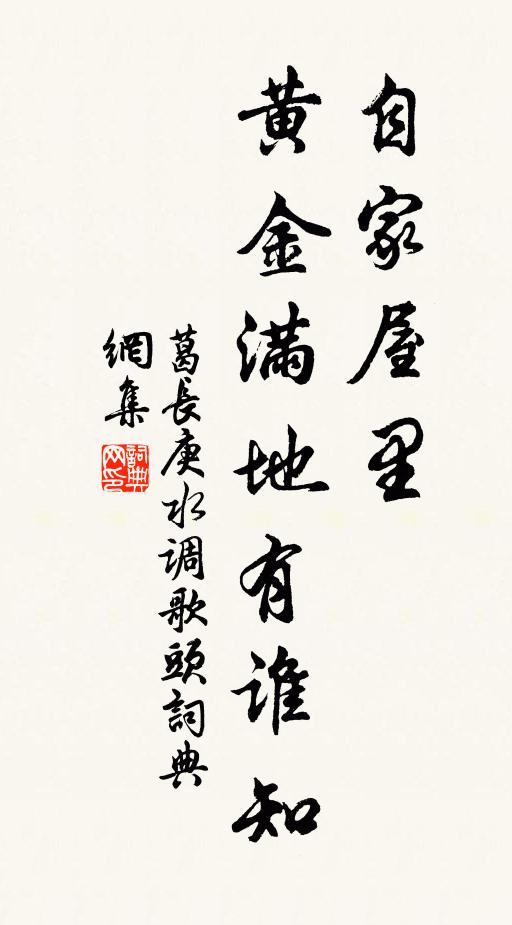 自家屋里
黄金滿地有誰知
葛長庚水调歌頭詞典
網集
詞典
网印